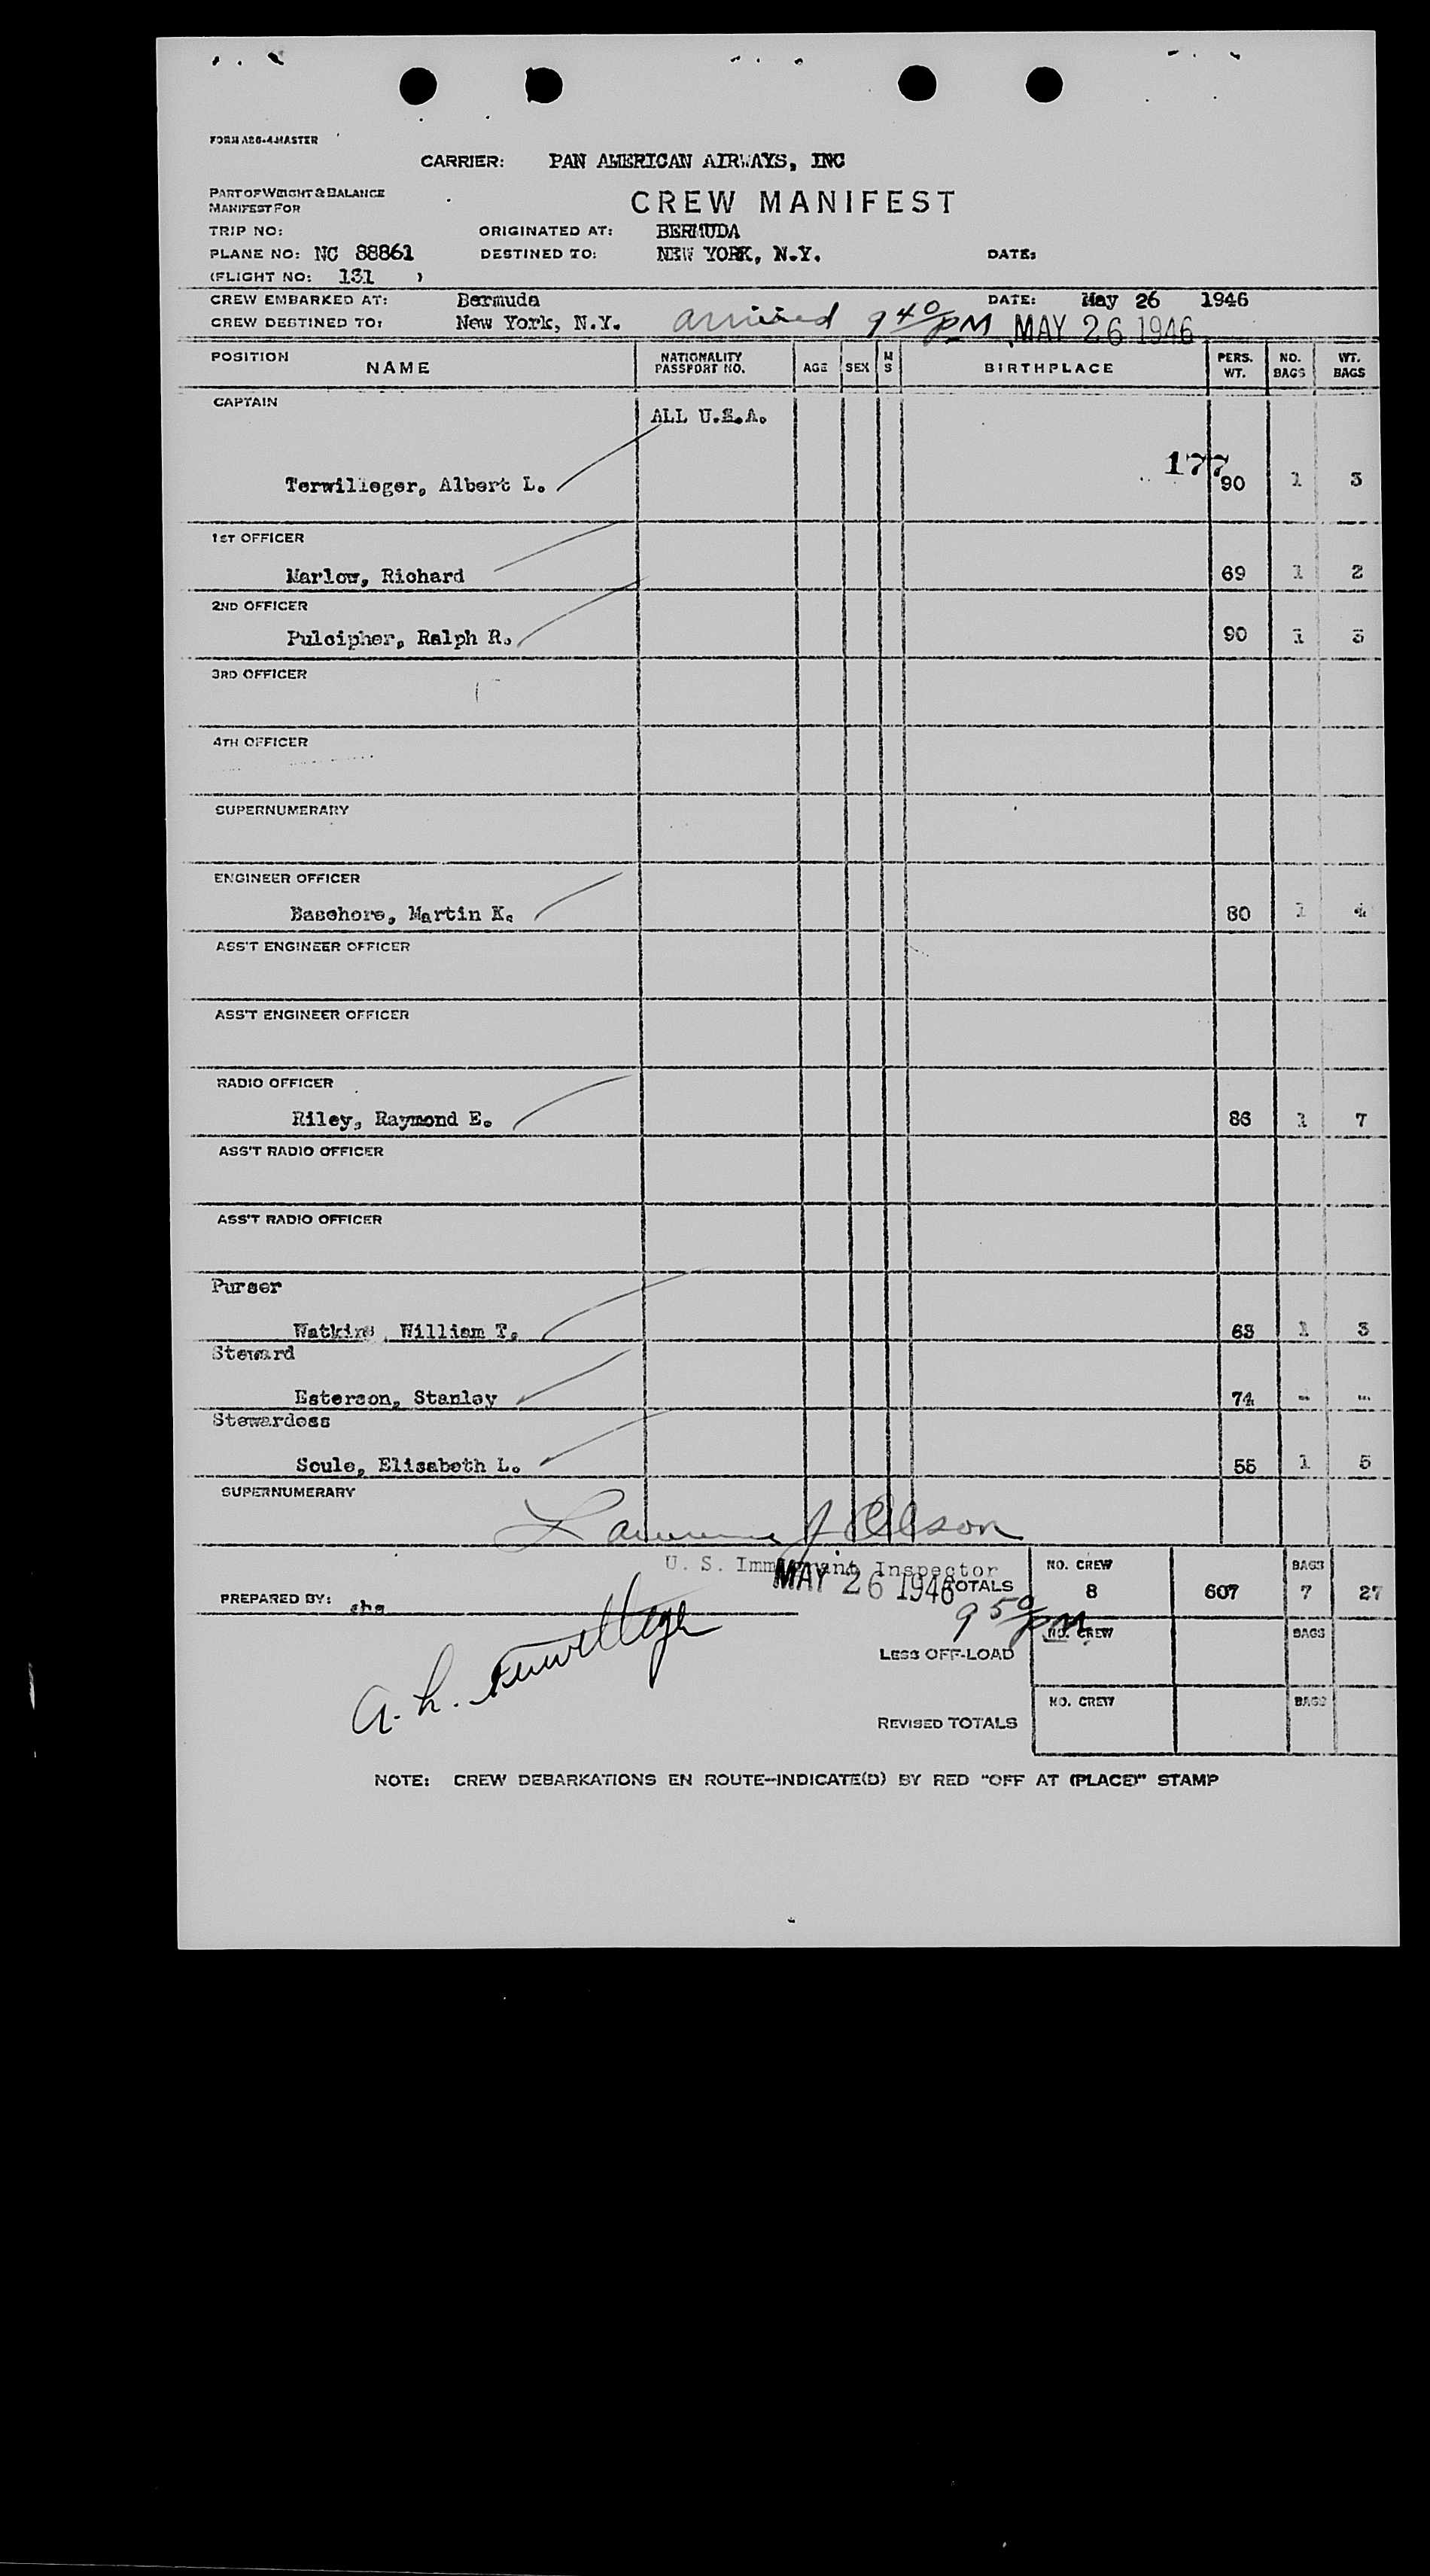 FORM A26-4 MASTER
CARRIER: PAN AMERICAN AIRWAYS, INC
PART OF WEIGHT & BALANCE
MANIFEST FOR
CREW MANIFEST
TRIP NO: ORIGINATED AT: BERMUDA
PLANE NO: NC 88861 DESTINED TO: NEW YORK, N.Y. DATE:
(FLIGHT NO: 131 )
CREW EMBARKED AT: Bermuda DATE: May 26 1946
CREW DESTINED TO: New York, N.Y. arrived 9 40 PM MAY 26 1946
POSITION NAME NATIONALITY PASSPORT NO. AGE SEX M S BIRTHPLACE PERS. WT. NO. BAGS WT. BAGS
CAPTAIN
ALL U.S.A.
177
Terwilleger, Albert L. 90 1 3
1ST OFFICER
Marlow, Richard 69 1 2
2ND OFFICER
Pulcipher, Ralph R. 90 1 3
3RD OFFICER
4TH OFFICER
SUPERNUMERARY
ENGINEER OFFICER
Basehore, Martin K. 80 1 4
ASS'T ENGINEER OFFICER
ASS'T ENGINEER OFFICER
RADIO OFFICER
Riley, Raymond E. 86 1 7
ASS'T RADIO OFFICER
ASS'T RADIO OFFICER
Purser
Watkins, William T. 63 1 3
Steward
Esterson, Stanley 74 - -
Stewardess
Soule, Elisabeth L. 55 1 5
SUPERNUMERARY
Lawrence J Olson
U. S. Immigrant Inspector
MAY 26 1946
TOTALS NO. CREW 8 607 BAGS 7 27
PREPARED BY:
9 50 PM
LESS OFF-LOAD NO. CREW BAGS
A. L. Terwilleger
REVISED TOTALS NO. CREW BAGS
NOTE: CREW DEBARKATIONS EN ROUTE--INDICATE(D) BY RED "OFF AT (PLACE)" STAMP